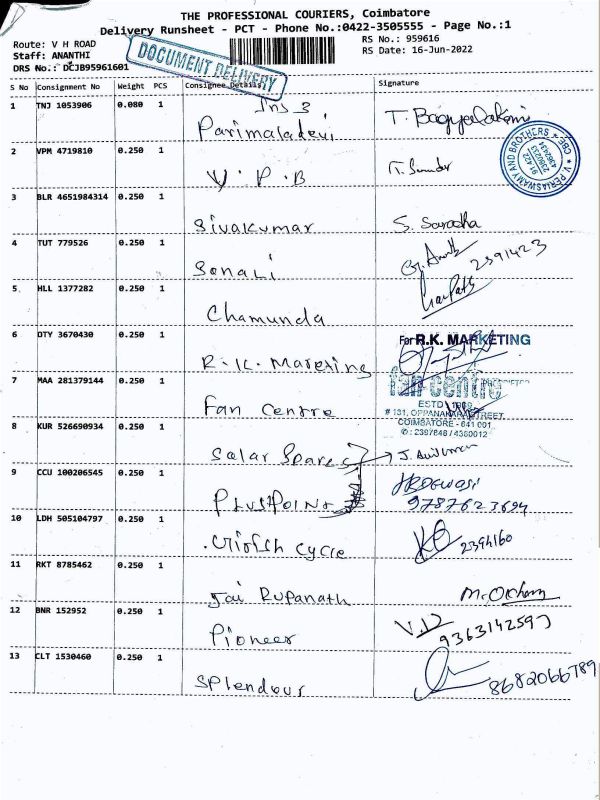 THE PROFESSIONAL COURIERS, Coimbatore
Delivery Runsheet - PCT - Phone No.:0422-3505555 - Page No.:1
Route: V H ROAD
Staff: ANANTHI
DRS No.: DCJB95961601
RS No.: 959616
RS Date: 16-Jun-2022
DOCUMENT DELIVERY
S No Consignment No Weight PCS Consignee Details Signature
1 TNJ 1053906 0.080 1
Parimaladevi
V PERIASWAMY AND BROTHERS CBE
2 VPM 4719810 0.250 1
V.P.B
3 BLR 4651984314 0.250 1
Sivakumar S. Saradha
4 TUT 779526 0.250 1
Sonali 2391423
5 HLL 1377282 0.250 1
Chamunda
6 OTY 3670430 0.250 1
For R.K. MARKETING
R.K. Mareting
7 MAA 281379144 0.250 1
fan centre
ESTD 1969
# 131, OPPANAKARA STREET,
COIMBATORE - 641 001
Fan Centre
8 KUR 526690934 0.250 1
✆ : 2397648 / 4350012
Solar Spares
9 CCU 100206545 0.250 1
PlusPoint 9787623694
10 LDH 505104797 0.250 1
Cycle 2394160
11 RKT 8785462 0.250 1
Jai Rupanath
12 BNR 152952 0.250 1
Pioneer 9363142597
13 CLT 1530460 0.250 1
Splendour 8682066789